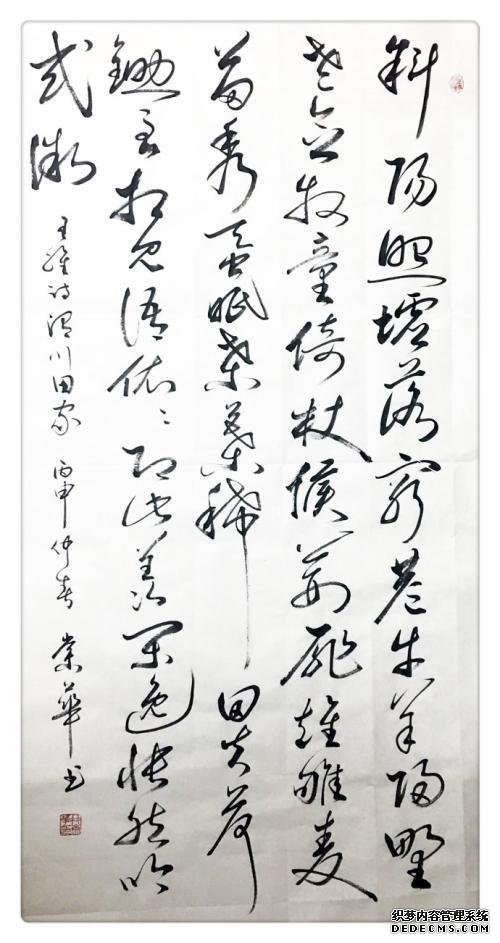 斜阳照墟落穷巷牛羊归野
老念牧童倚杖候荆扉雉雊麦
苗秀蚕眠桑葉稀田夫荷
锄至相见语依〻即此羡闲逸怅然吟
式微
王维诗渭川田家 丙申仲春 華书
织梦内容管理系统
DEDECMS.COM